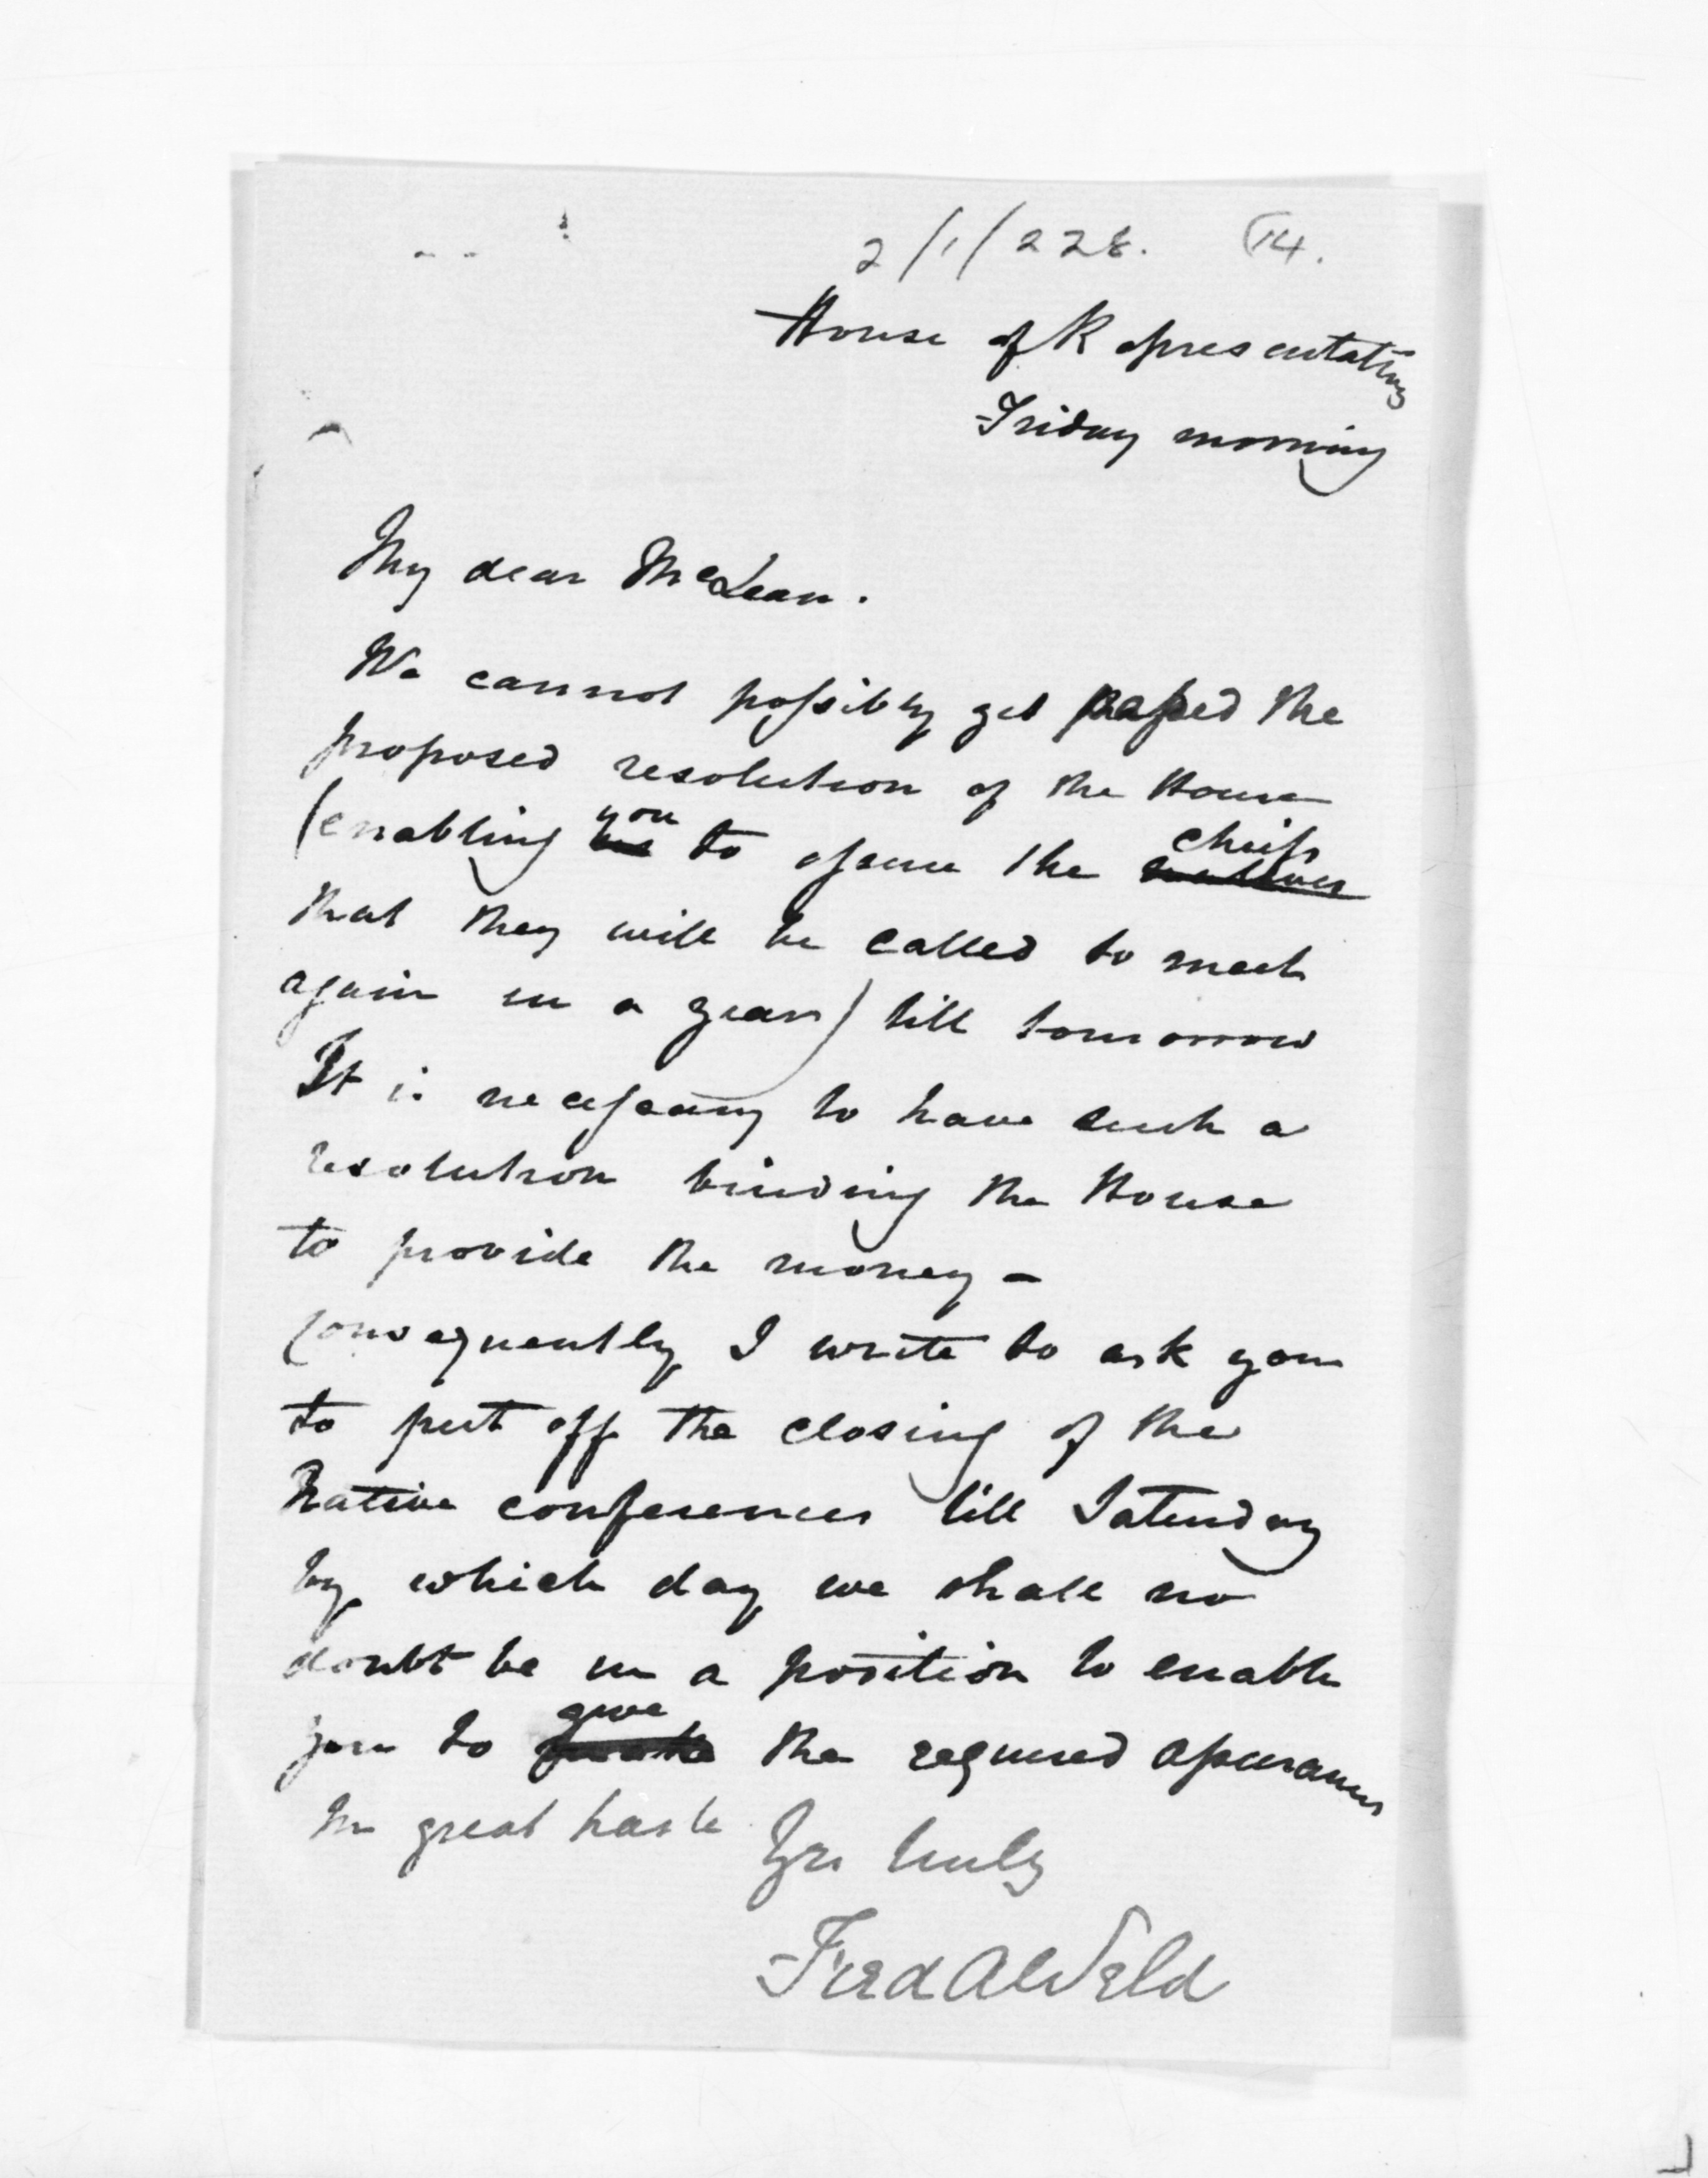 2/1/228. (14.
House of Representatives
Friday morning
My dear McLean.
We cannot possibly get passed the
proposed resolution of the House
(enabling you to assure the chiefs
that they will be called to meet
again in a year) till tomorrow
It is necessary to have such a
resolution binding the House
to provide the money –
Consequently I write to ask you
to put off the closing of the
Native conferences till Saturday
by which day we shall no
doubt be in a position to enable
you to give the required assurances
In great haste Yrs truly
Fred A Weld